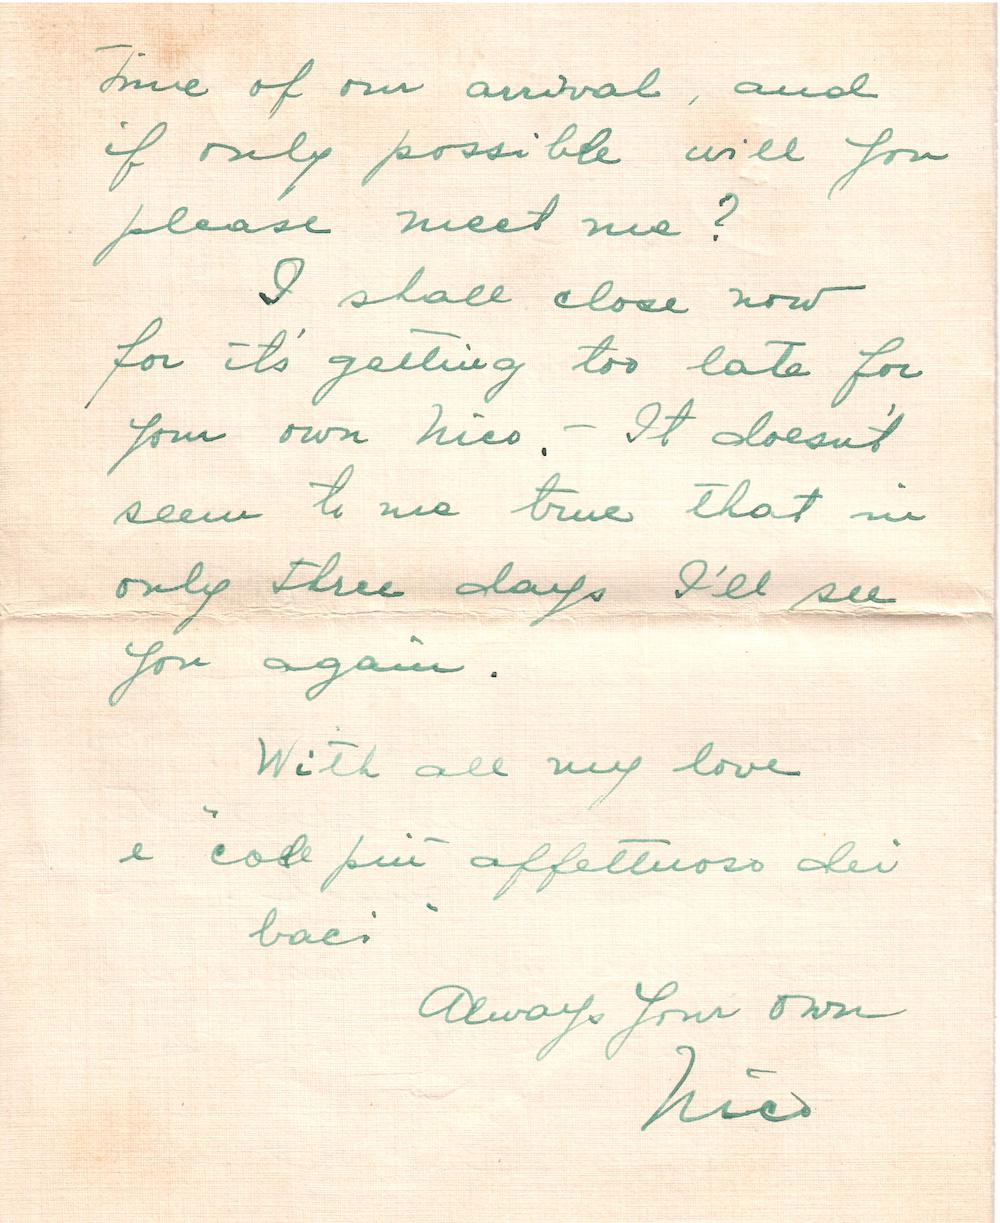 time of our arrival, and
if only possible will you
please meet me?
I shall close now
for it's getting too late for
your own Nico. - It doesn't
seem to me true that in
only three days I'll see
you again.
With all my love
e "col più affettuoso dei
baci"
Always Your own
Nico